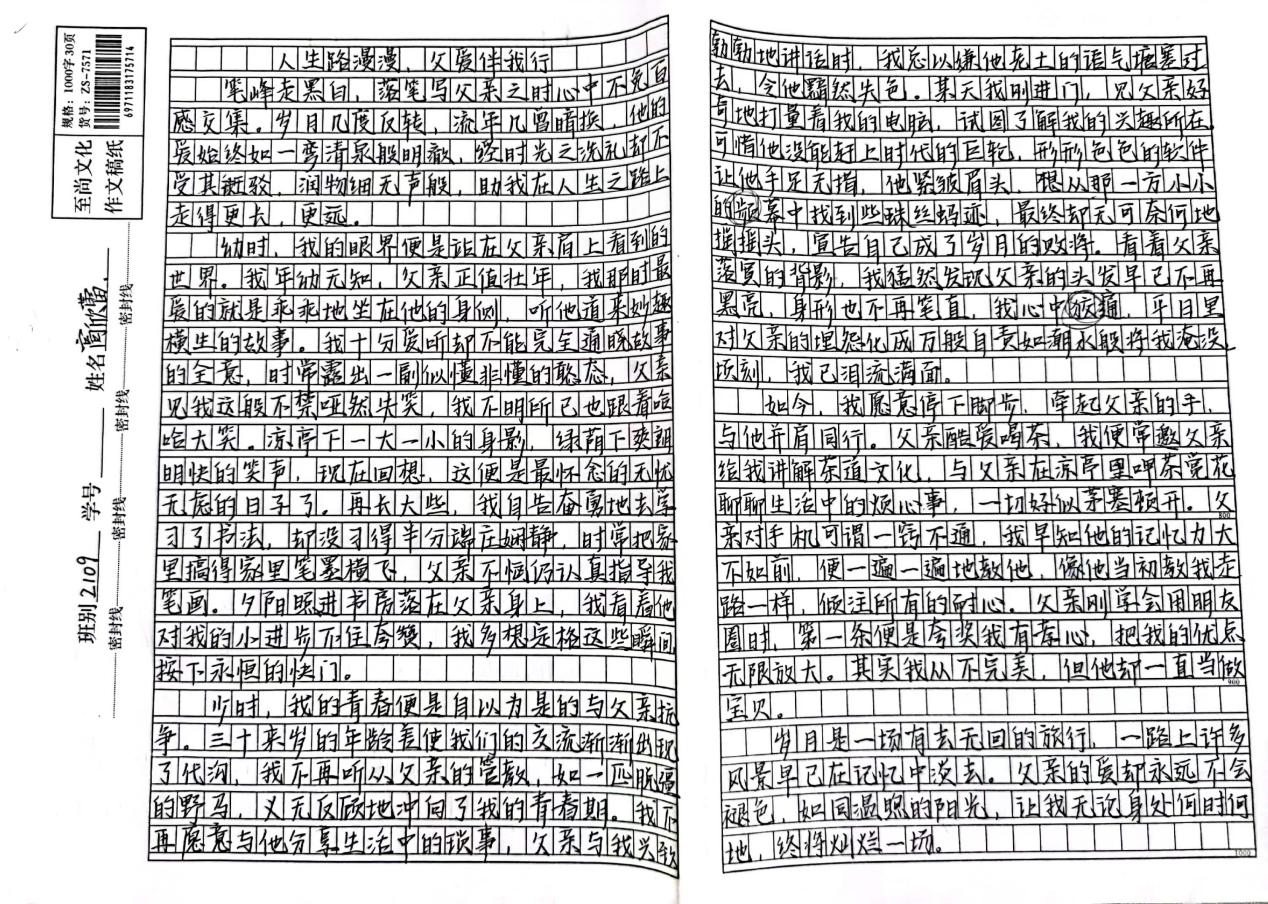 规格：1000字30页
货号：ZS-7571
6971183175714
至尚文化
作文稿纸
班别2109 学号 姓名
密封线 密封线 密封线 密封线
人生路漫漫，父爱伴我行
笔峰走黑白，落笔写父亲之时心中不免百
感交集。岁月几度反转，流年几曾暗换，他的
爱始终如一弯清泉般明澈，经时光之洗礼却不
受其斑驳，润物细无声般，助我在人生之路上
走得更长，更远。
幼时，我的眼界便是站在父亲肩上看到的
世界。我年幼无知，父亲正值壮年，我那时最
爱的就是乖乖地坐在他的身侧，听他道来妙趣
横生的故事。我十分爱听却不能完全通晓故事
的全意，时常露出一副似懂非懂的憨态，父亲
见我这般不禁哑然失笑，我不明所已也跟着哈
哈大笑。凉亭下一大一小的身影，绿荫下爽朗
明快的笑声，现在回想，这便是最怀念的无忧
无虑的日子了。再长大些，我自告奋勇地去学
习了书法，却没习得半分端庄娴静，时常把家
里搞得家里笔墨横飞，父亲不恼仍认真指导我
笔画。夕阳照进书房落在父亲身上，我看着他
对我的小进步不住夸赞，我多想定格这些瞬间
按下永恒的快门。
少时，我的青春便是自以为是的与父亲抗
争。三十来岁的年龄差使我们的交流渐渐出现
了代沟，我不再听从父亲的管教，如一匹脱缰
的野马，义无反顾地冲向了我的青春期。我不
再愿意与他分享生活中的琐事，父亲与我兴致
勃勃地讲话时，我总以嫌他老土的语气搪塞过
去，令他黯然失色。某天我刚进门，见父亲好
奇地打量着我的电脑，试图了解我的兴趣所在
可惜他没能赶上时代的巨轮，形形色色的软件
让他手足无措，他紧皱眉头，想从那一方小小
的频幕中找到些珠丝蚂迹，最终却无可奈何地
摇摇头，宣告自己成了岁月的败将。看着父亲
落寞的背影，我猛然发现父亲的头发早已不再
黑亮，身形也不再笔直，我心中，平日里
对父亲的埋怨化成万般自责如潮水般将我淹没
顷刻，我已泪流满面。
如今，我愿意停下脚步，牵起父亲的手，
与他并肩同行。父亲酷爱喝茶，我便常邀父亲
给我讲解茶道文化，与父亲在凉亭里呷茶赏花
聊聊生活中的烦心事，一切好似茅塞顿开。父
800
亲对手机可谓一窍不通，我早知他的记忆力大
不如前，便一遍一遍地教他，像他当初教我走
路一样，倾注所有的耐心。父亲刚学会用朋友
圈时，第一条便是夸奖我有孝心，把我的优点
无限放大。其实我从不完美，但他却一直当做
900
宝贝。
岁月是一场有去无回的旅行，一路上许多
风景早已在记忆中淡去。父亲的爱却永远不会
褪色，如同温煦的阳光，让我无论身处何时何
地，终将灿烂一场。
1000